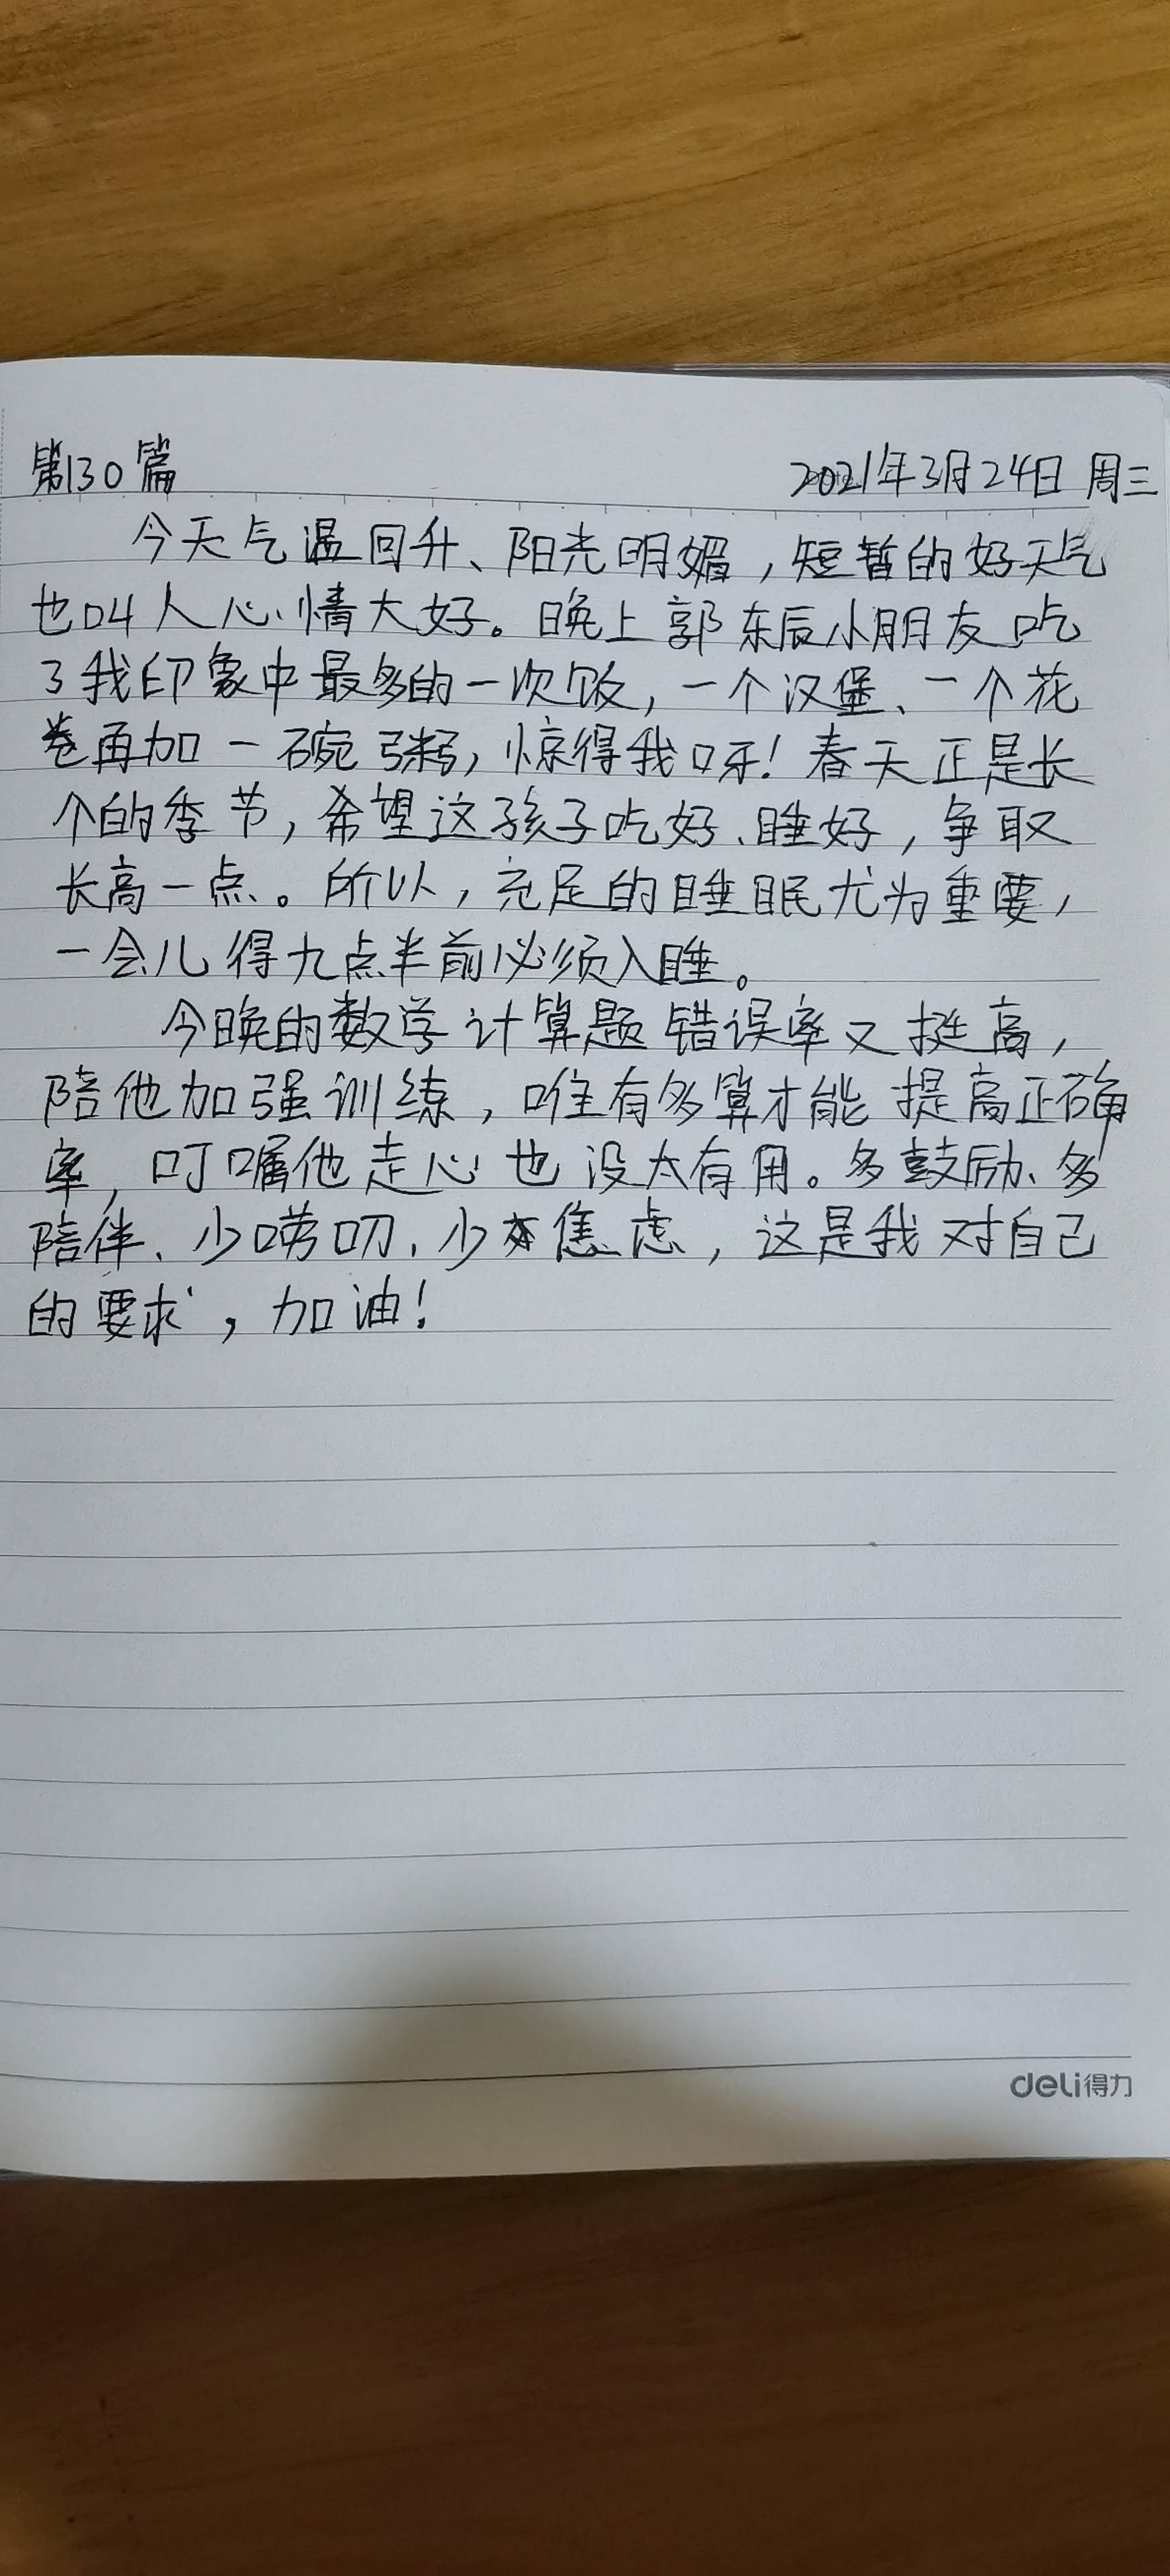 第130篇 2021年3月24日 周三
今天气温回升、阳光明媚，短暂的好天气
也叫人心情大好。晚上郭东辰小朋友吃
了我印象中最多的一次饭，一个汉堡、一个花
卷再加一碗粥，惊得我呀！春天正是长
个的季节，希望这孩子吃好、睡好，争取
长高一点。所以，充足的睡眠尤为重要，
一会儿得九点半前必须入睡。
今晚的数学计算题错误率又挺高，
陪他加强训练，唯有多算才能提高正确
率，叮嘱他走心也没太有用。多鼓励、多
陪伴、少唠叨、少焦虑，这是我对自己
的要求，加油！
deli得力